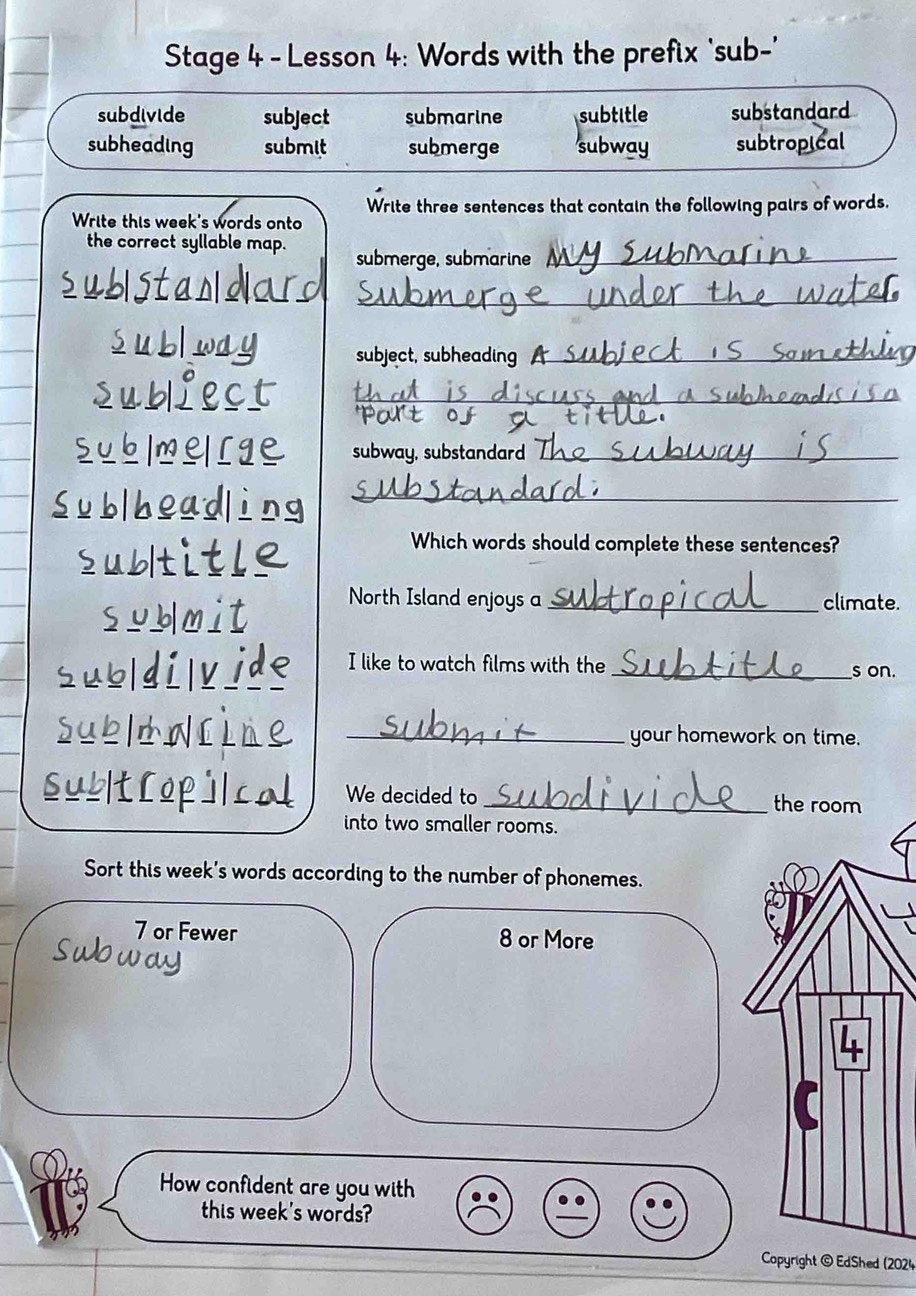 Stage 4 - Lesson 4: Words with the prefix 'sub-'
subdivide subject submarine subtitle substandard
subheading submit submerge subway subtropical
Write this week's words onto
the correct syllable map.
sub|stan|dard
sub|way
sub|ject
sub|me|rge
sub|head|ing
sub|title
sub|mit
sub|di|vide
sub|marine
sub|tropi|cal
Write three sentences that contain the following pairs of words.
submerge, submarine My submarine
submerge under the water.
subject, subheading A subject is something
that is discuss and a subheadis is a
part of a tittle.
subway, substandard The subway is
substandard.
Which words should complete these sentences?
North Island enjoys a subtropical climate.
I like to watch films with the subtitle s on.
submit your homework on time.
We decided to subdivide the room
into two smaller rooms.
Sort this week's words according to the number of phonemes.
7 or Fewer 8 or More
subway
4
How confident are you with
this week's words?
Copyright © EdShed (2024